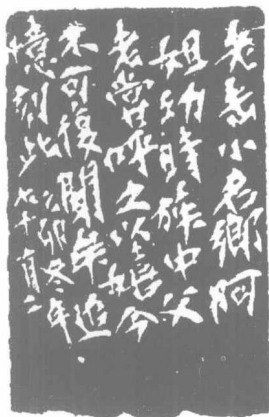 老缶小名鄉阿
姐幼時族中父
老嘗呼之以嬉今
不可復聞矣追
憶刻此乙卯冬年七十有二